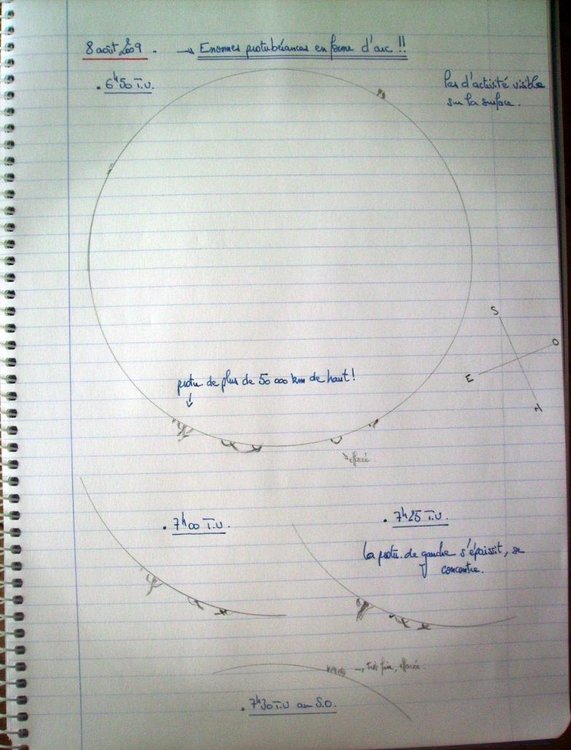 8 août 2009. → Enormes protubérances en forme d'arc !!
• 6h50 T.U.
Pas d'activité visible
sur la surface.
S
O
E
N
protu de plus de 50 000 km de haut !
↓
→ effacé
• 7h00 T.U.
• 7h25 T.U.
La protu. de gauche s'épaissit, se
concentre.
→ très fin, effacée.
• 7h30 T.U au S.O.